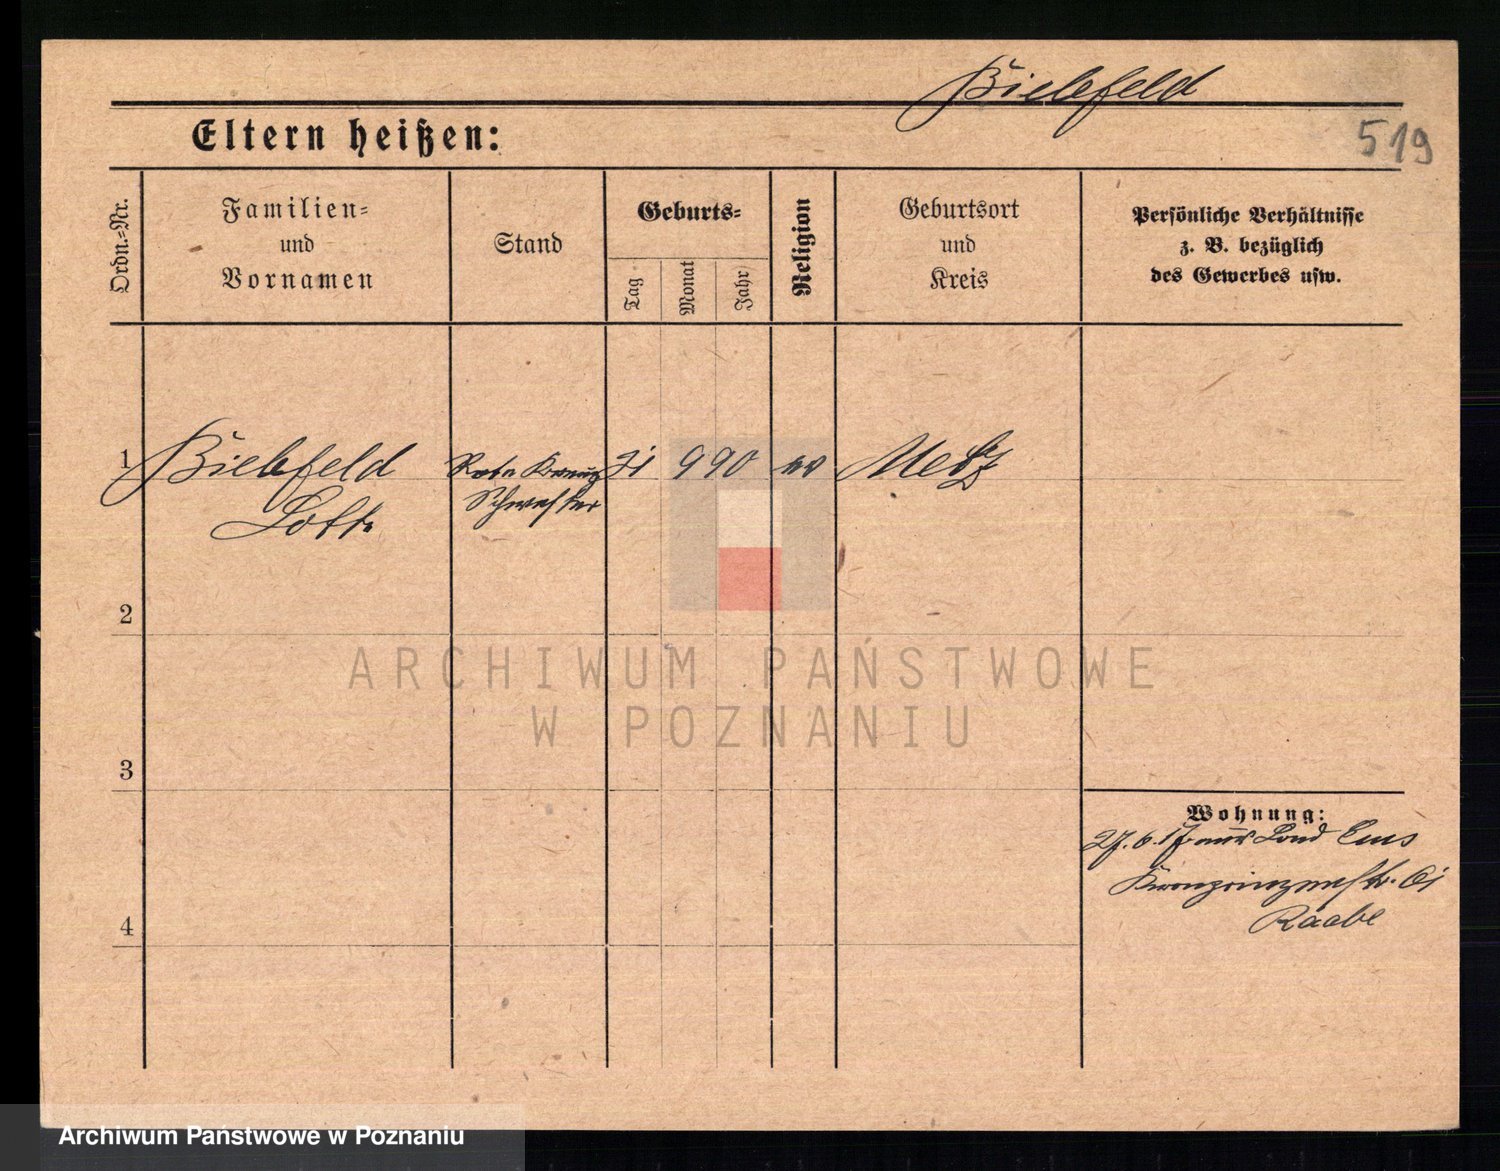 Bielefeld
Eltern heißen:
519
Ordn.-Nr.
Familien-
und
Vornamen
Stand
Geburts-
Tag
Monat
Jahr
Religion
Geburtsort
und
Kreis
Persönliche Verhältnisse
z. B. bezüglich
des Gewerbes usw.
1 Bielefeld Rote Kreuz 9 90 Metz
Lotte Schwester
2
ARCHIWUM PAŃSTWOWE
W POZNANIU
3
Wohnung:
27. 6. 17 aus Bad Ems
Kronprinzenstr.
Raabe
4
Archiwum Państwowe w Poznaniu